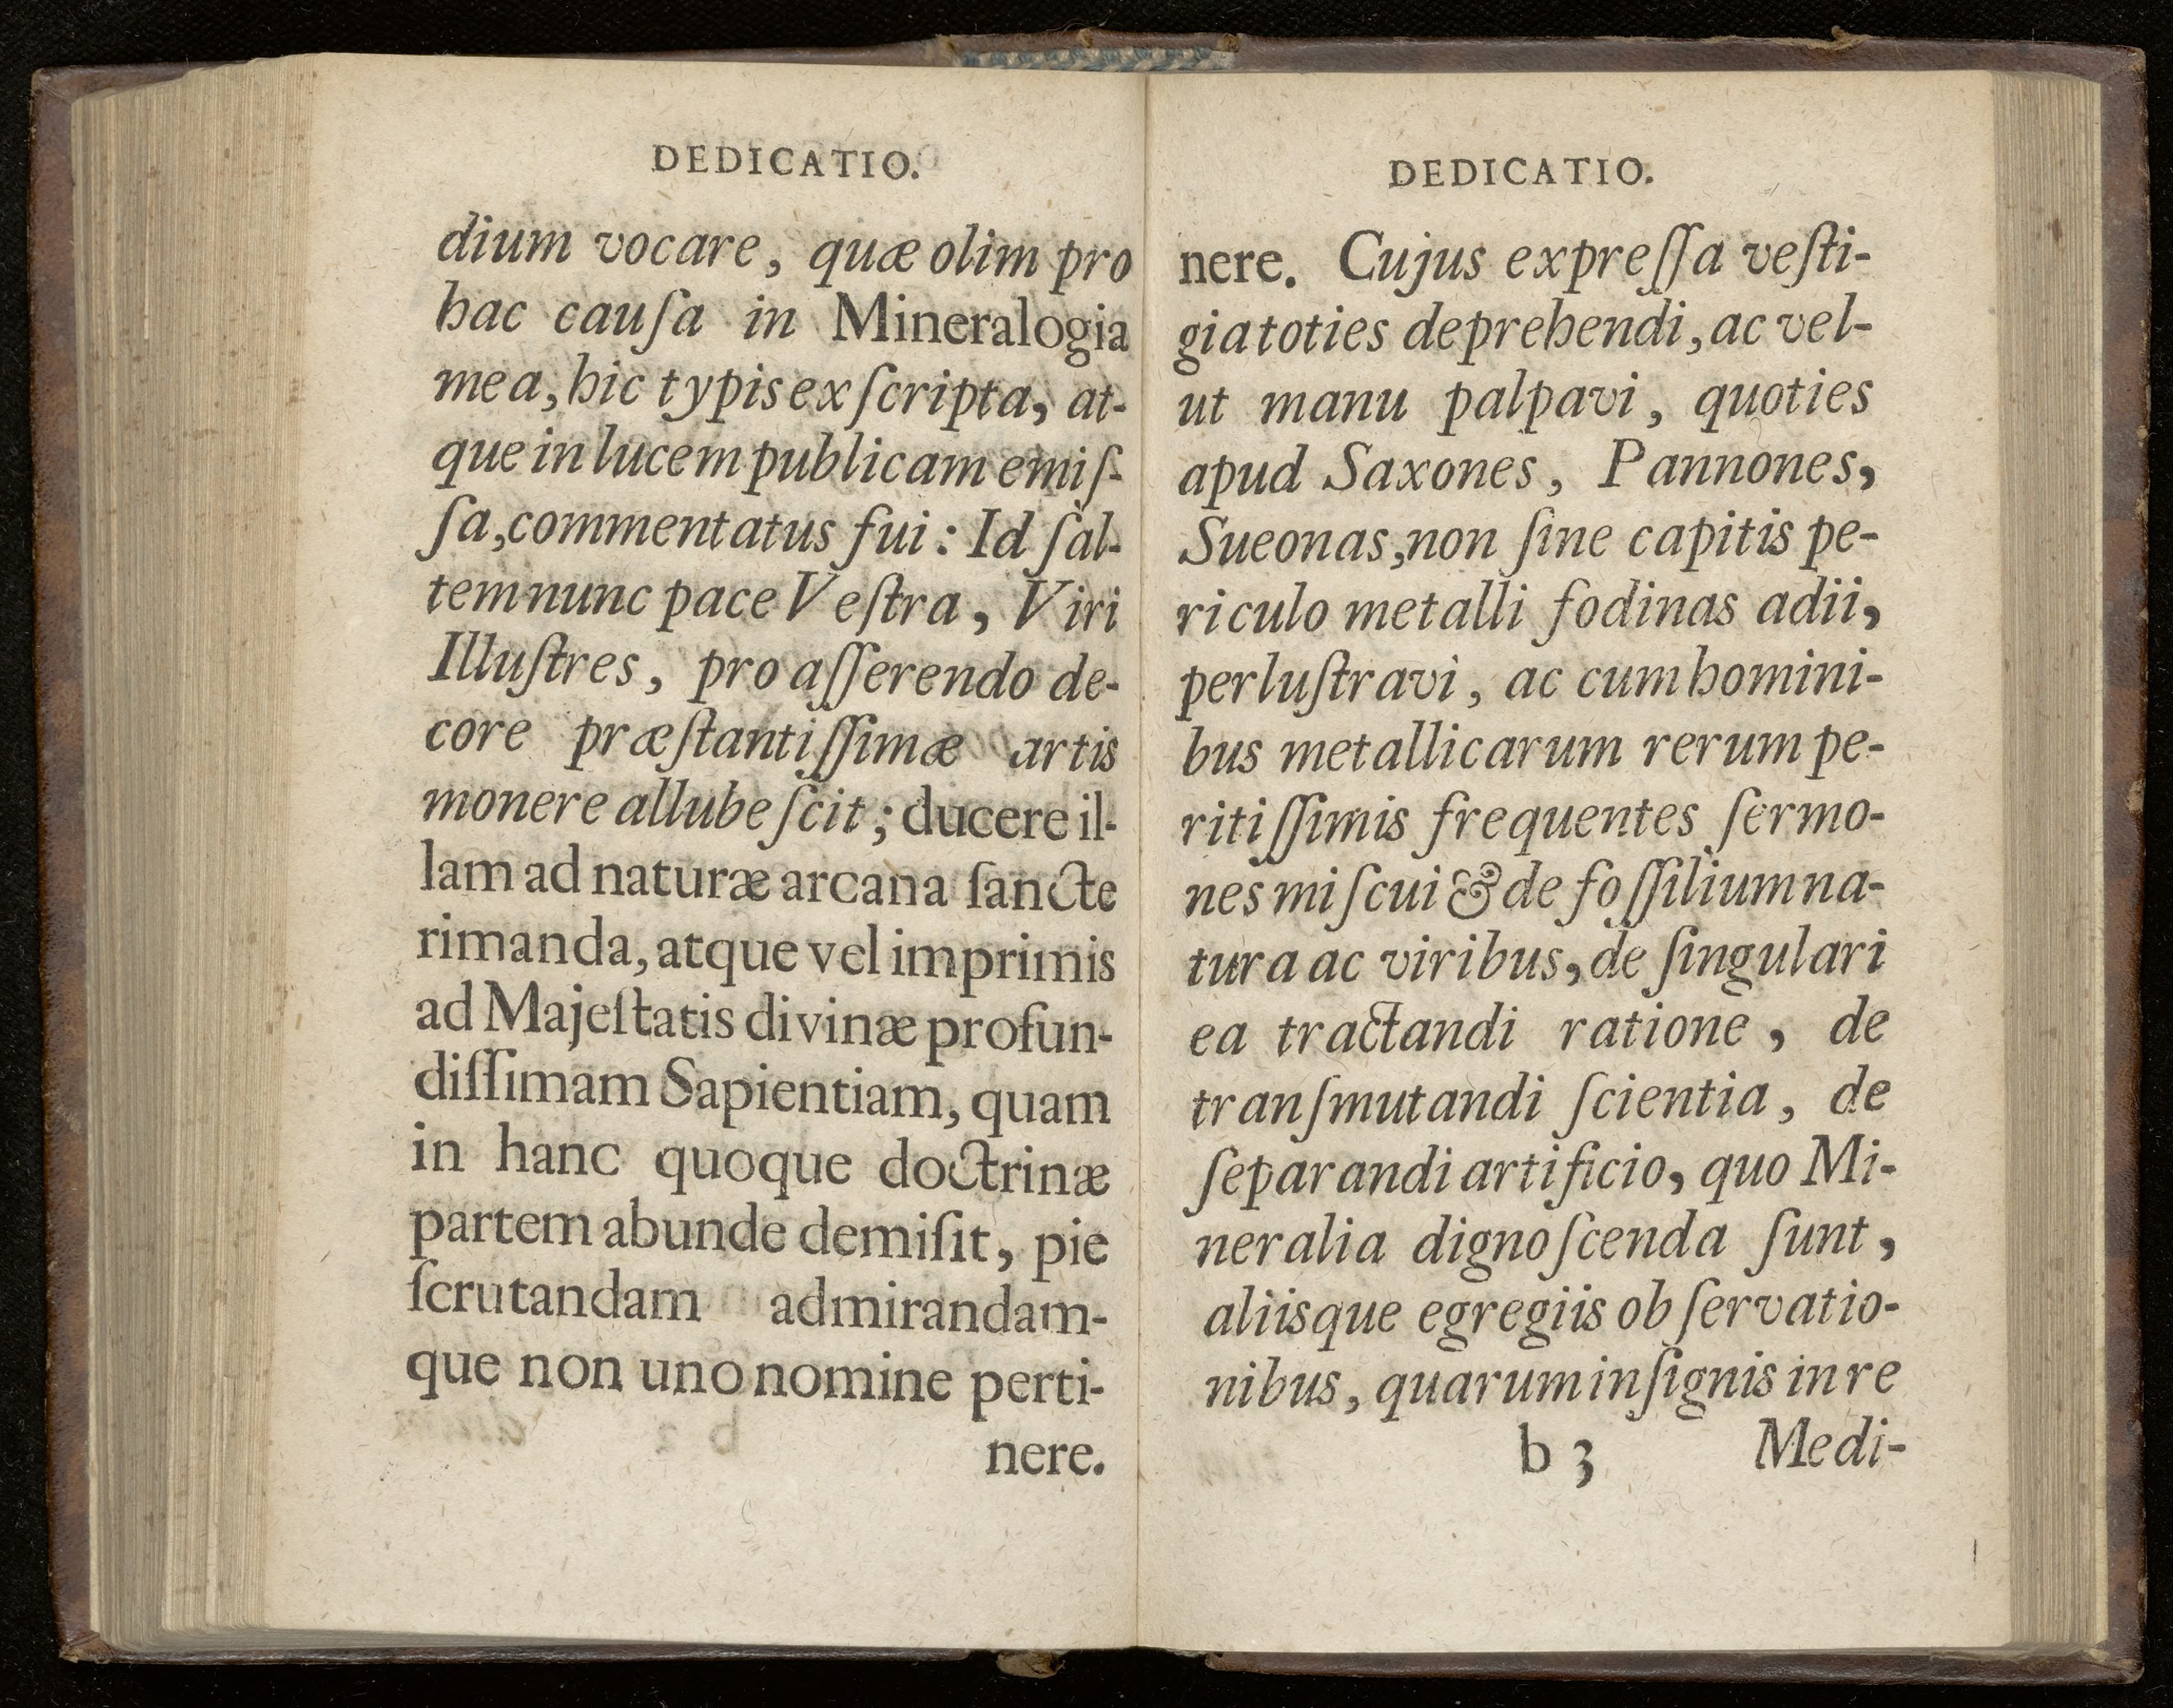 DEDICATIO.
dium vocare, quæ olim pro
hac cauſa in Mineralogia
mea, hic typis exſcripta, at-
que in lucem publicam emiſ-
ſa, commentatus fui: Id ſal-
tem nunc pace Veſtra, Viri
Illuſtres, pro aſſerendo de-
core præſtantiſſimæ artis
monere allubeſcit; ducere il-
lam ad naturæ arcana ſancte
rimanda, atque vel imprimis
ad Majeſtatis divinæ profun-
diſſimam Sapientiam, quam
in hanc quoque doctrinæ
partem abunde demiſit, pie
ſcrutandam admirandam-
que non uno nomine perti-
nere.
DEDICATIO.
nere. Cujus expreſſa veſti-
gia toties deprehendi, ac vel-
ut manu palpavi, quoties
apud Saxones, Pannones,
Sueonas, non ſine capitis pe-
riculo metalli fodinas adii,
perluſtravi, ac cum homini-
bus metallicarum rerum pe-
ritiſſimis frequentes ſermo-
nes miſcui & de foſſilium na-
tura ac viribus, de ſingulari
ea tractandi ratione, de
tranſmutandi ſcientia, de
ſeparandi artificio, quo Mi-
neralia dignoſcenda ſunt,
aliisque egregiis obſervatio-
nibus, quarum inſignis in re
b 3 Medi-